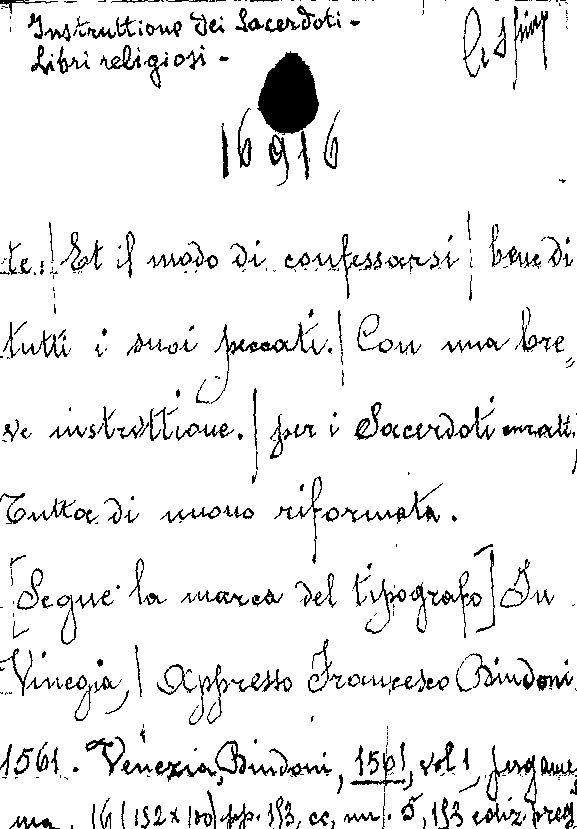 Instruttione dei Sacerdoti -
Libri religiosi -
16916
te. | Et il modo di confessarsi | bene di
tutti i suoi peccati. | Con una bre=
ve instruttione. | per i Sacerdoti curati,
Tutta di nuovo riformata.
[Segue la marca del tipografo] In
Vinegia, | Appresso Francesco Bindoni
1561. Venezia, Bindoni, 1561, vol 1, pergame
na, 16 (152 x 100) pp. 153, cc, nu. 5, 153 ediz. preg